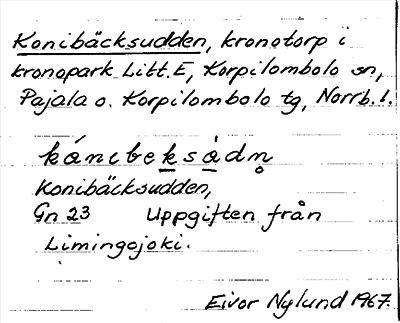 Konibäcksudden, kronotorp i
kronopark Litt. E, Korpilombolo sn,
Pajala o. Korpilombolo tg, Norrb. l.
kánibeksàdn̥
Konibäcksudden,
Gn 23 Uppgiften från
Limingojoki.
Eivor Nylund 1967.